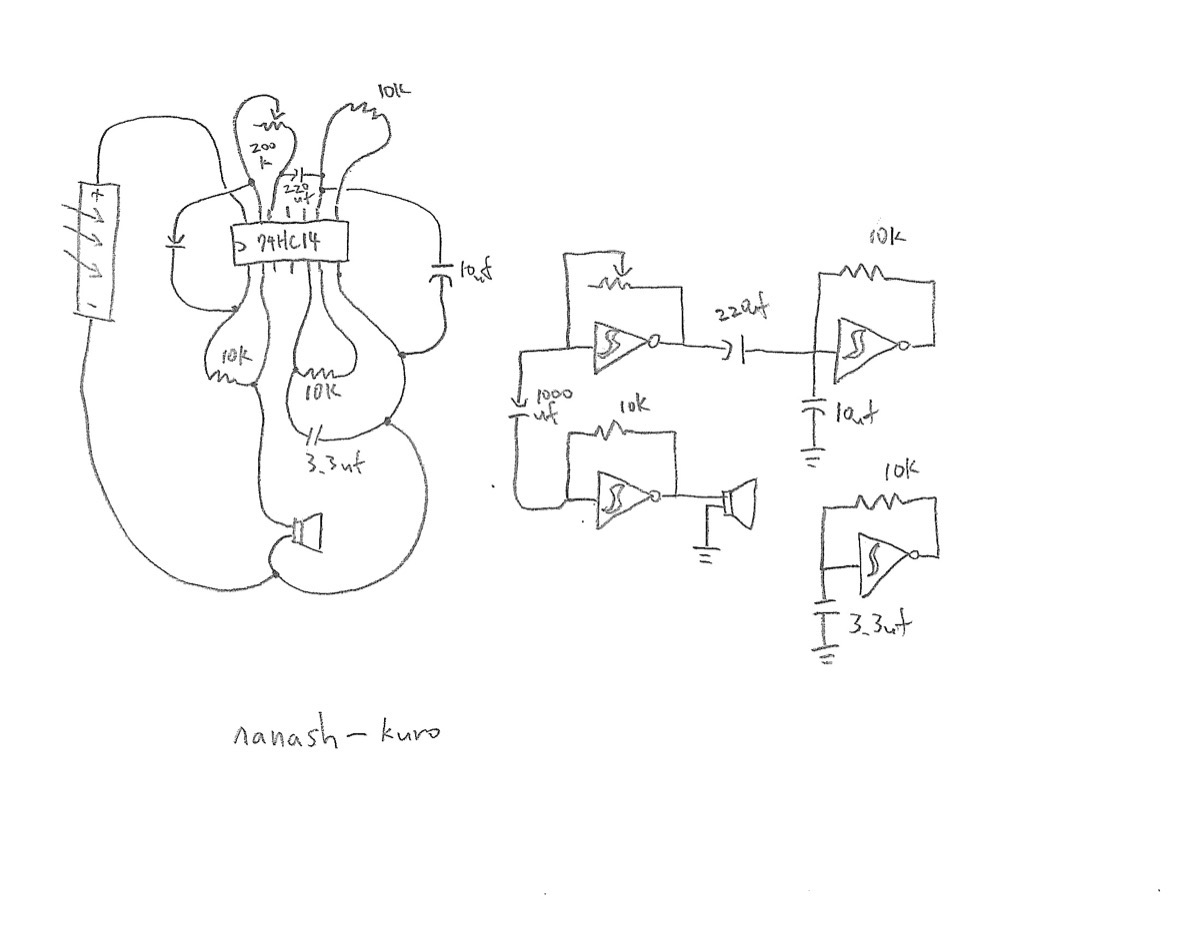 10k
200
k
220
uf
+
74HC14
10uf
-
10k
10k
3.3uf
10k
220uf
1000
uf
10k
10uf
10k
3.3uf
nanash-kuro